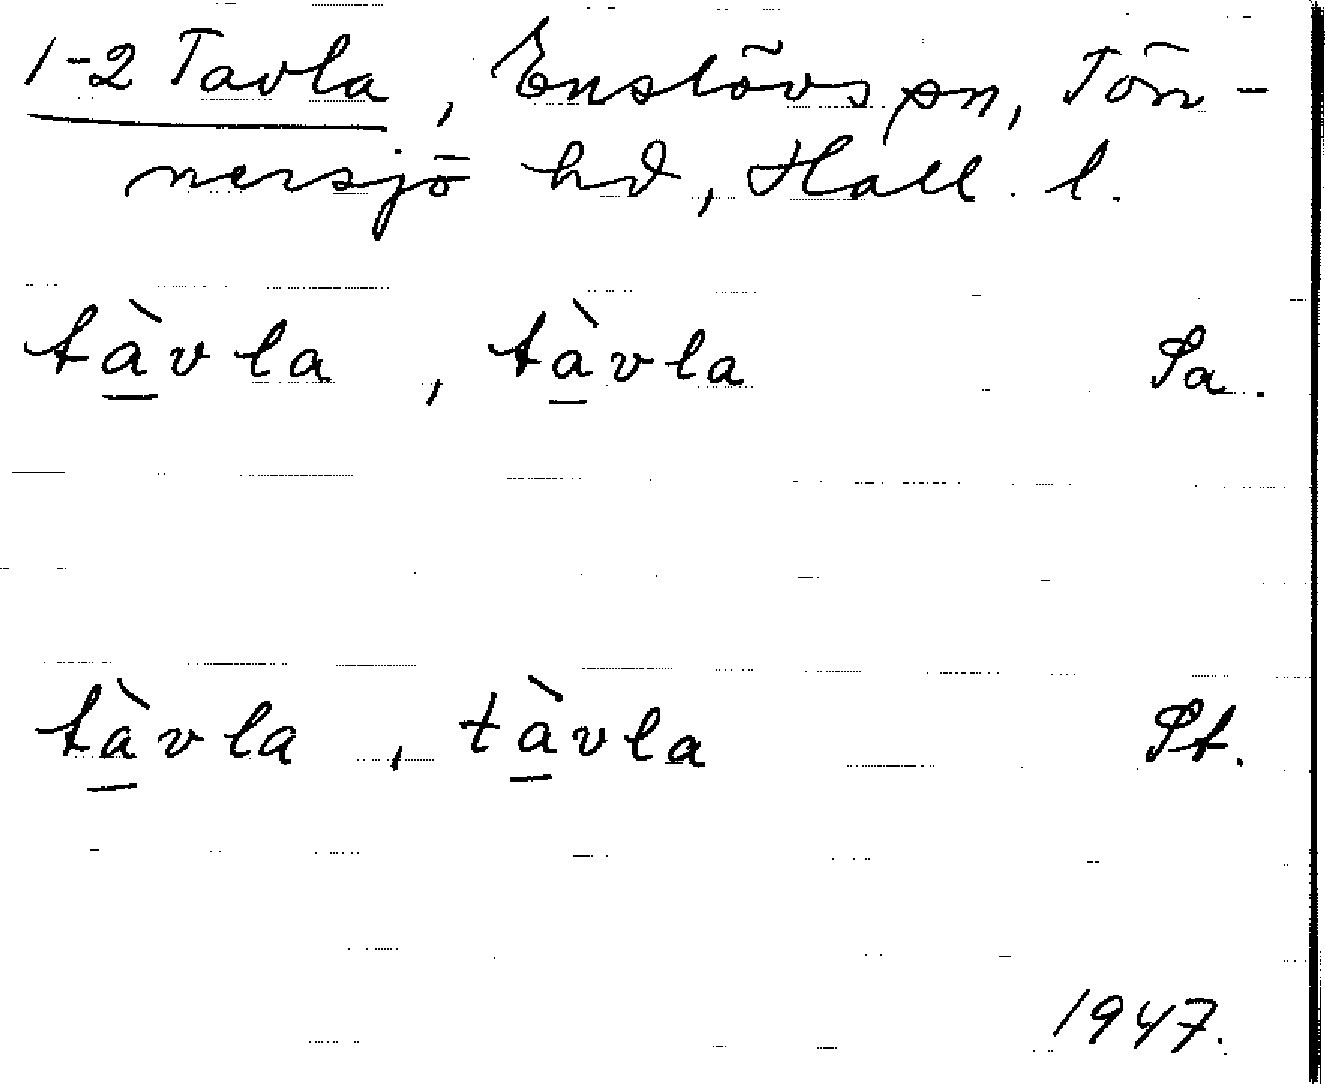 1-2 Tavla, Enslövs sn, Tön-
nersjö hd, Hall. l.
tàvla, tàvla Sa.
tàvla, tàvla St.
1947.